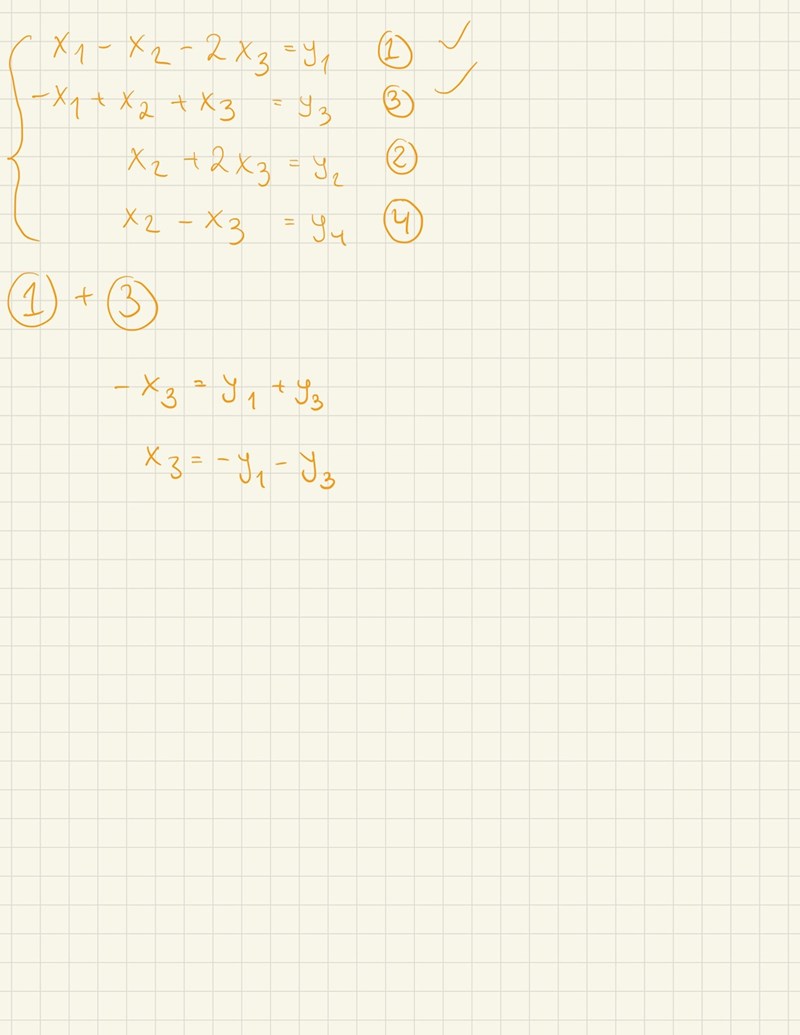 x₁ - x₂ - 2x₃ = y₁ ① ✓
-x₁ + x₂ + x₃ = y₃ ③ ✓
x₂ + 2x₃ = y₂ ②
x₂ - x₃ = y₄ ④
① + ③
- x₃ = y₁ + y₃
x₃ = -y₁ - y₃